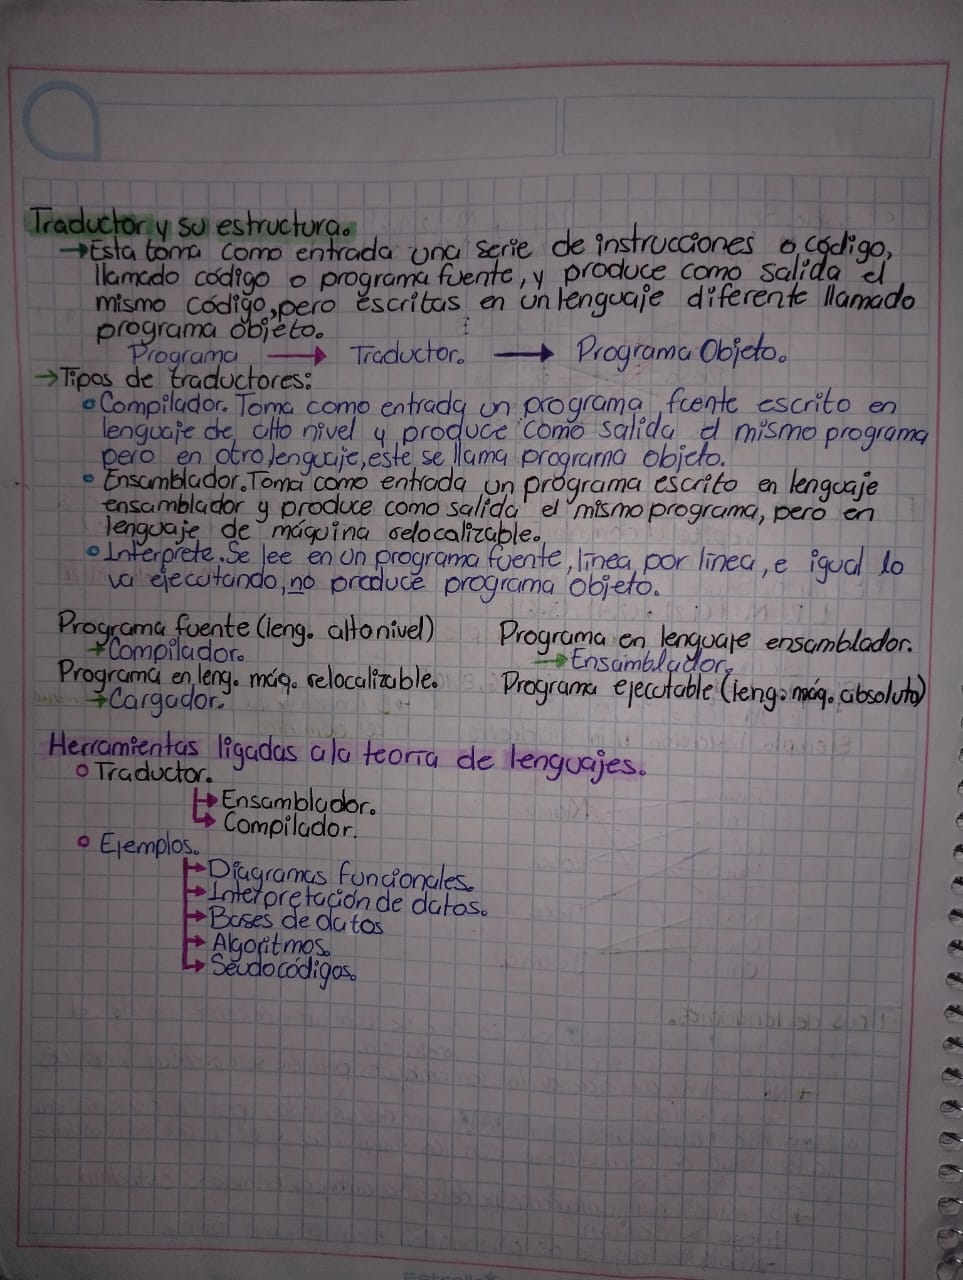 Traductor y su estructura.
→Esta toma como entrada una serie de instrucciones o código,
llamado código o programa fuente, y produce como salida el
mismo código, pero escritas en un lenguaje diferente llamado
programa objeto.
Programa → Traductor. → Programa Objeto.
→Tipos de traductores:
Compilador. Toma como entrada un programa fuente escrito en
lenguaje de alto nivel y produce como salida el mismo programa
pero en otro lenguaje, este se llama programa objeto.
Ensamblador. Toma como entrada un programa escrito en lenguaje
ensamblador y produce como salida el mismo programa, pero en
lenguaje de máquina relocalizable.
Interprete. Se lee en un programa fuente, línea por línea, e igual lo
va ejecutando, no produce programa objeto.
Programa fuente (leng. alto nivel)
→Compilador.
Programa en leng. máq. relocalizable.
→Cargador.
Programa en lenguaje ensamblador.
→Ensamblador.
Programa ejecutable (leng. máq. absoluto)
Herramientas ligadas a la teoría de lenguajes.
Traductor.
→Ensamblador.
→Compilador.
Ejemplos.
→Diagramas funcionales.
→Interpretación de datos.
→Bases de datos
→Algoritmos.
→Seudocódigos.